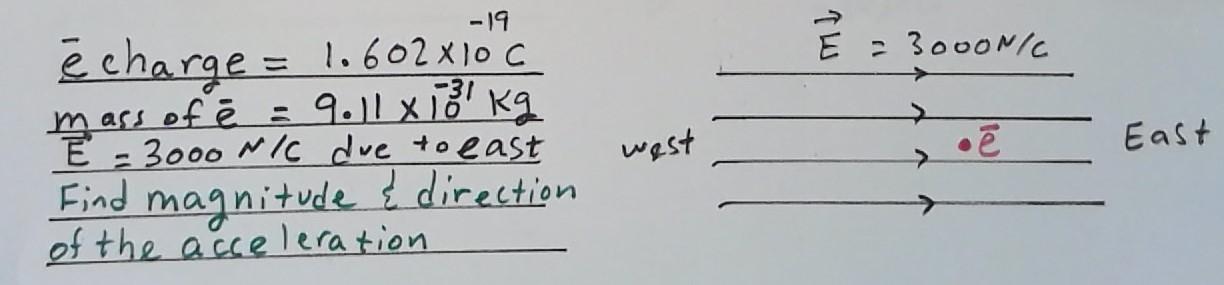 ē charge = 1.602×10⁻¹⁹ C
mass of ē = 9.11 × 10⁻³¹ kg
E⃗ = 3000 N/C due to east
Find magnitude & direction
of the acceleration
E⃗ = 3000 N/C
west
•ē
East